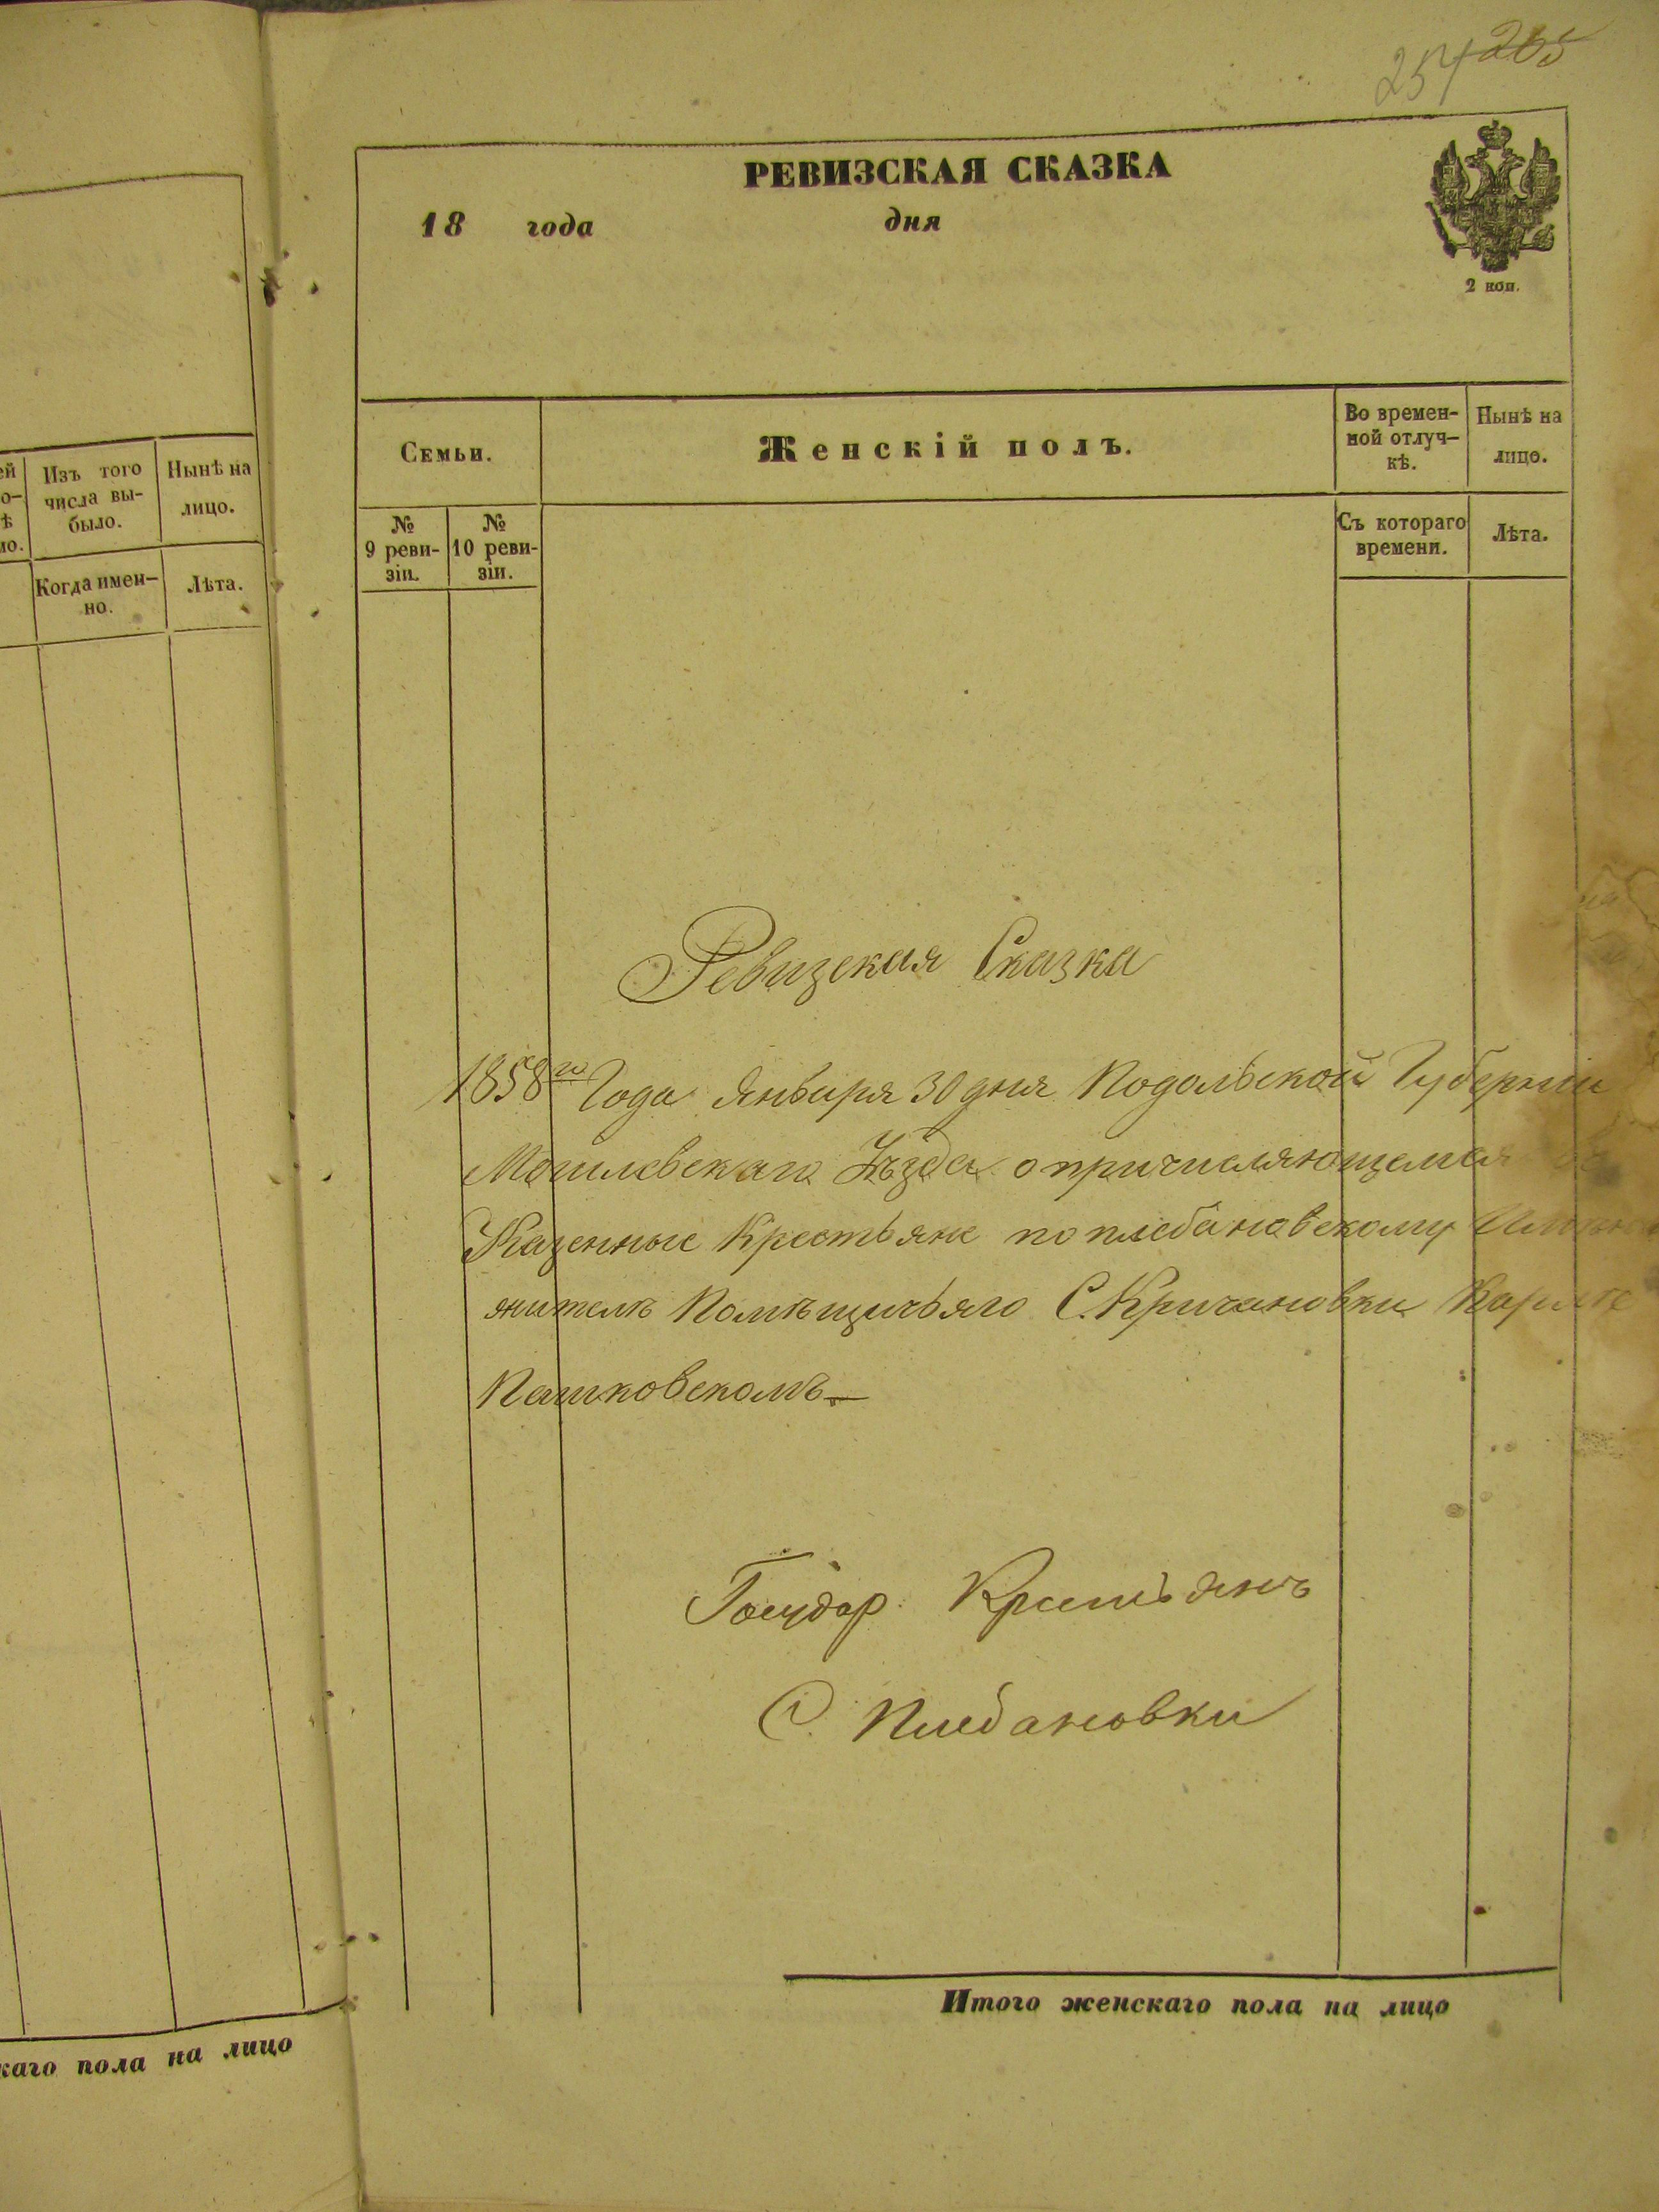 254 265
РЕВИЗСКАЯ СКАЗКА
18 года дня
2 коп.
Семьи.
Женскій полъ.
Во времен-
ной отлуч-
кѣ.
Нынѣ на
лицо.
№
9 реви-
зіи.
№
10 реви-
зіи.
Съ котораго
времени.
Лѣта.
Изъ того
числа вы-
было.
Нынѣ на
лицо.
Когда имен-
но.
Лѣта.
Ревизская Сказка
1858го Года Января 30 дня Подольской Губерніи
Могилевскаго Уѣзда о причисляющемся
Казенные Крестьяне по плебановскому
жителѣ Помѣщичьяго С. Кричановки
Пашковскомъ
Государ. Крестьянъ
С. Плебановки
Итого женскаго пола на лицо
каго пола на лицо